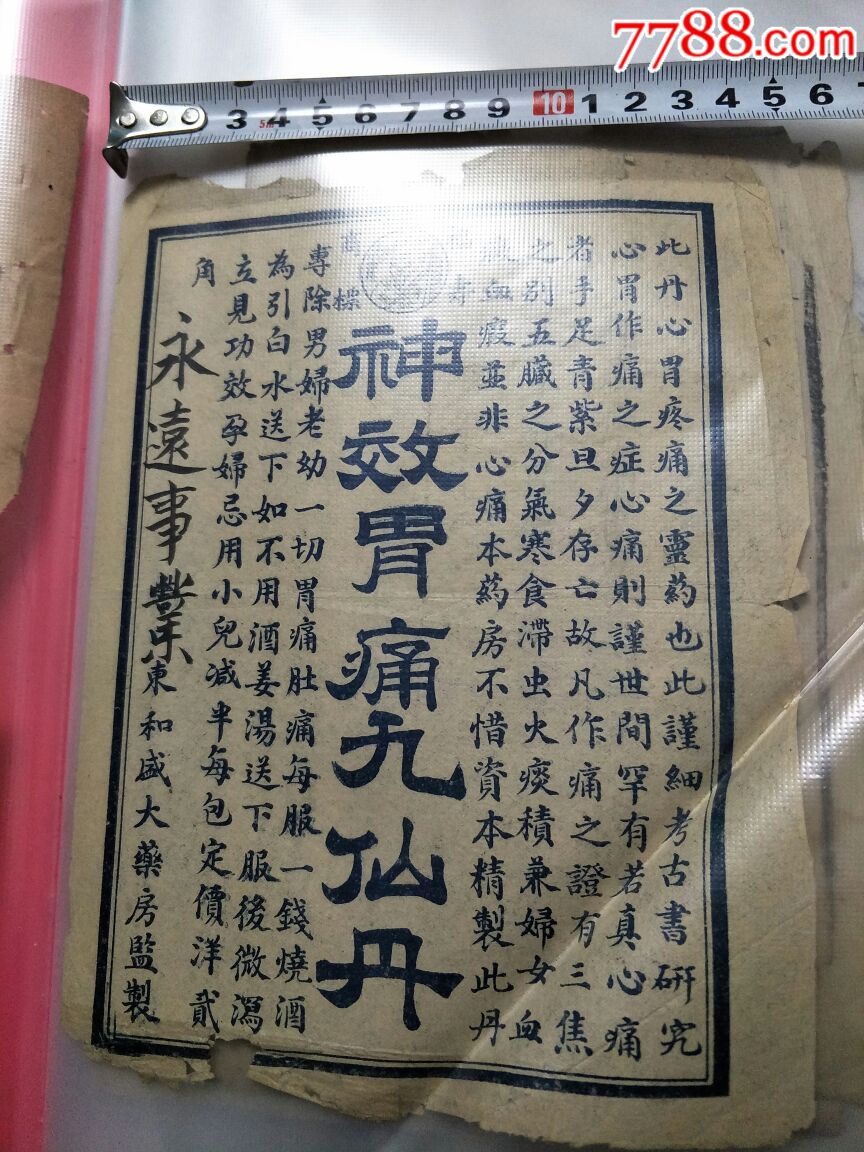 7788.com
3 4 5 6 7 8 9 10 1 2 3 4 5 6 7
5m
此丹心胃疼痛之靈葯也此謹細考古書研究
心胃作痛之症心痛則謹世間罕有若真心痛
者手足青紫旦夕存亡故凡作痛之證有三焦
之別五臟之分氣寒食滯虫火痰積兼婦女血
血瘕並非心痛本葯房不惜資本精製此丹
壽
標
神效胃痛九仙丹
專除男婦老幼一切胃痛肚痛每服一錢燒酒
為引白水送下如不用酒姜湯送下服後微瀉
立見功效孕婦忌用小兒減半每包定價洋貳
角
永遠事業
東和盛大藥房監製